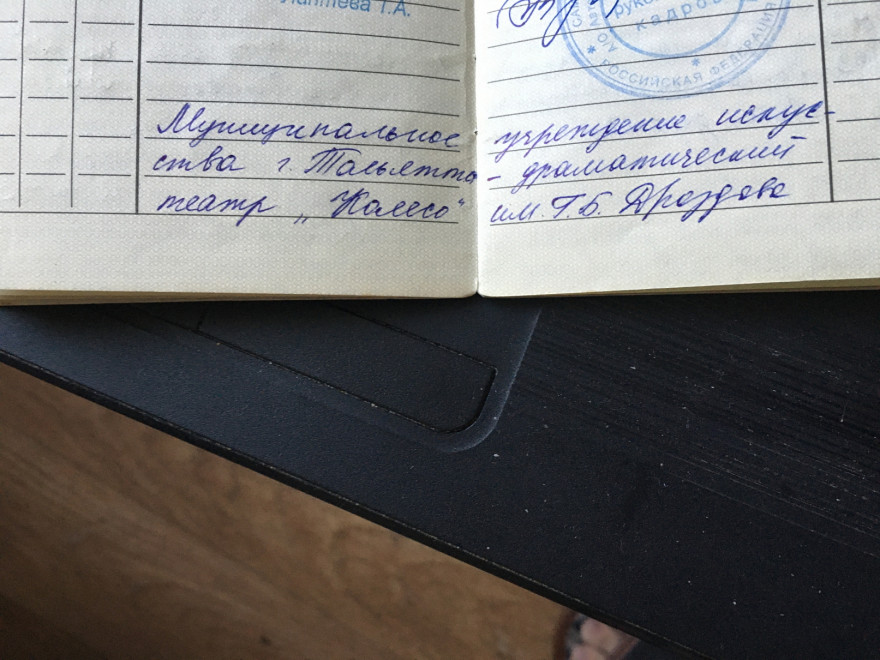 Лаптева Т.А.
кадров
* РОССИЙСКАЯ ФЕДЕРАЦИЯ
Муниципальное учреждение искус-
ства г. Тольятти - драматический
театр „Колесо" им. Г.Б. Дроздова